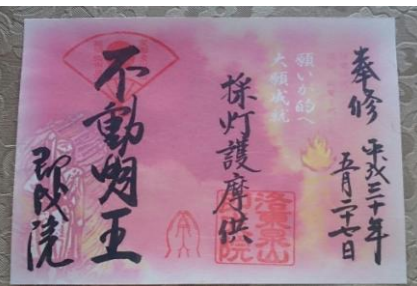 奉修
平成三十年
五月二十七日
願いが的へ
大願成就
採灯護摩供
洛東泉山
不動明王
即成院